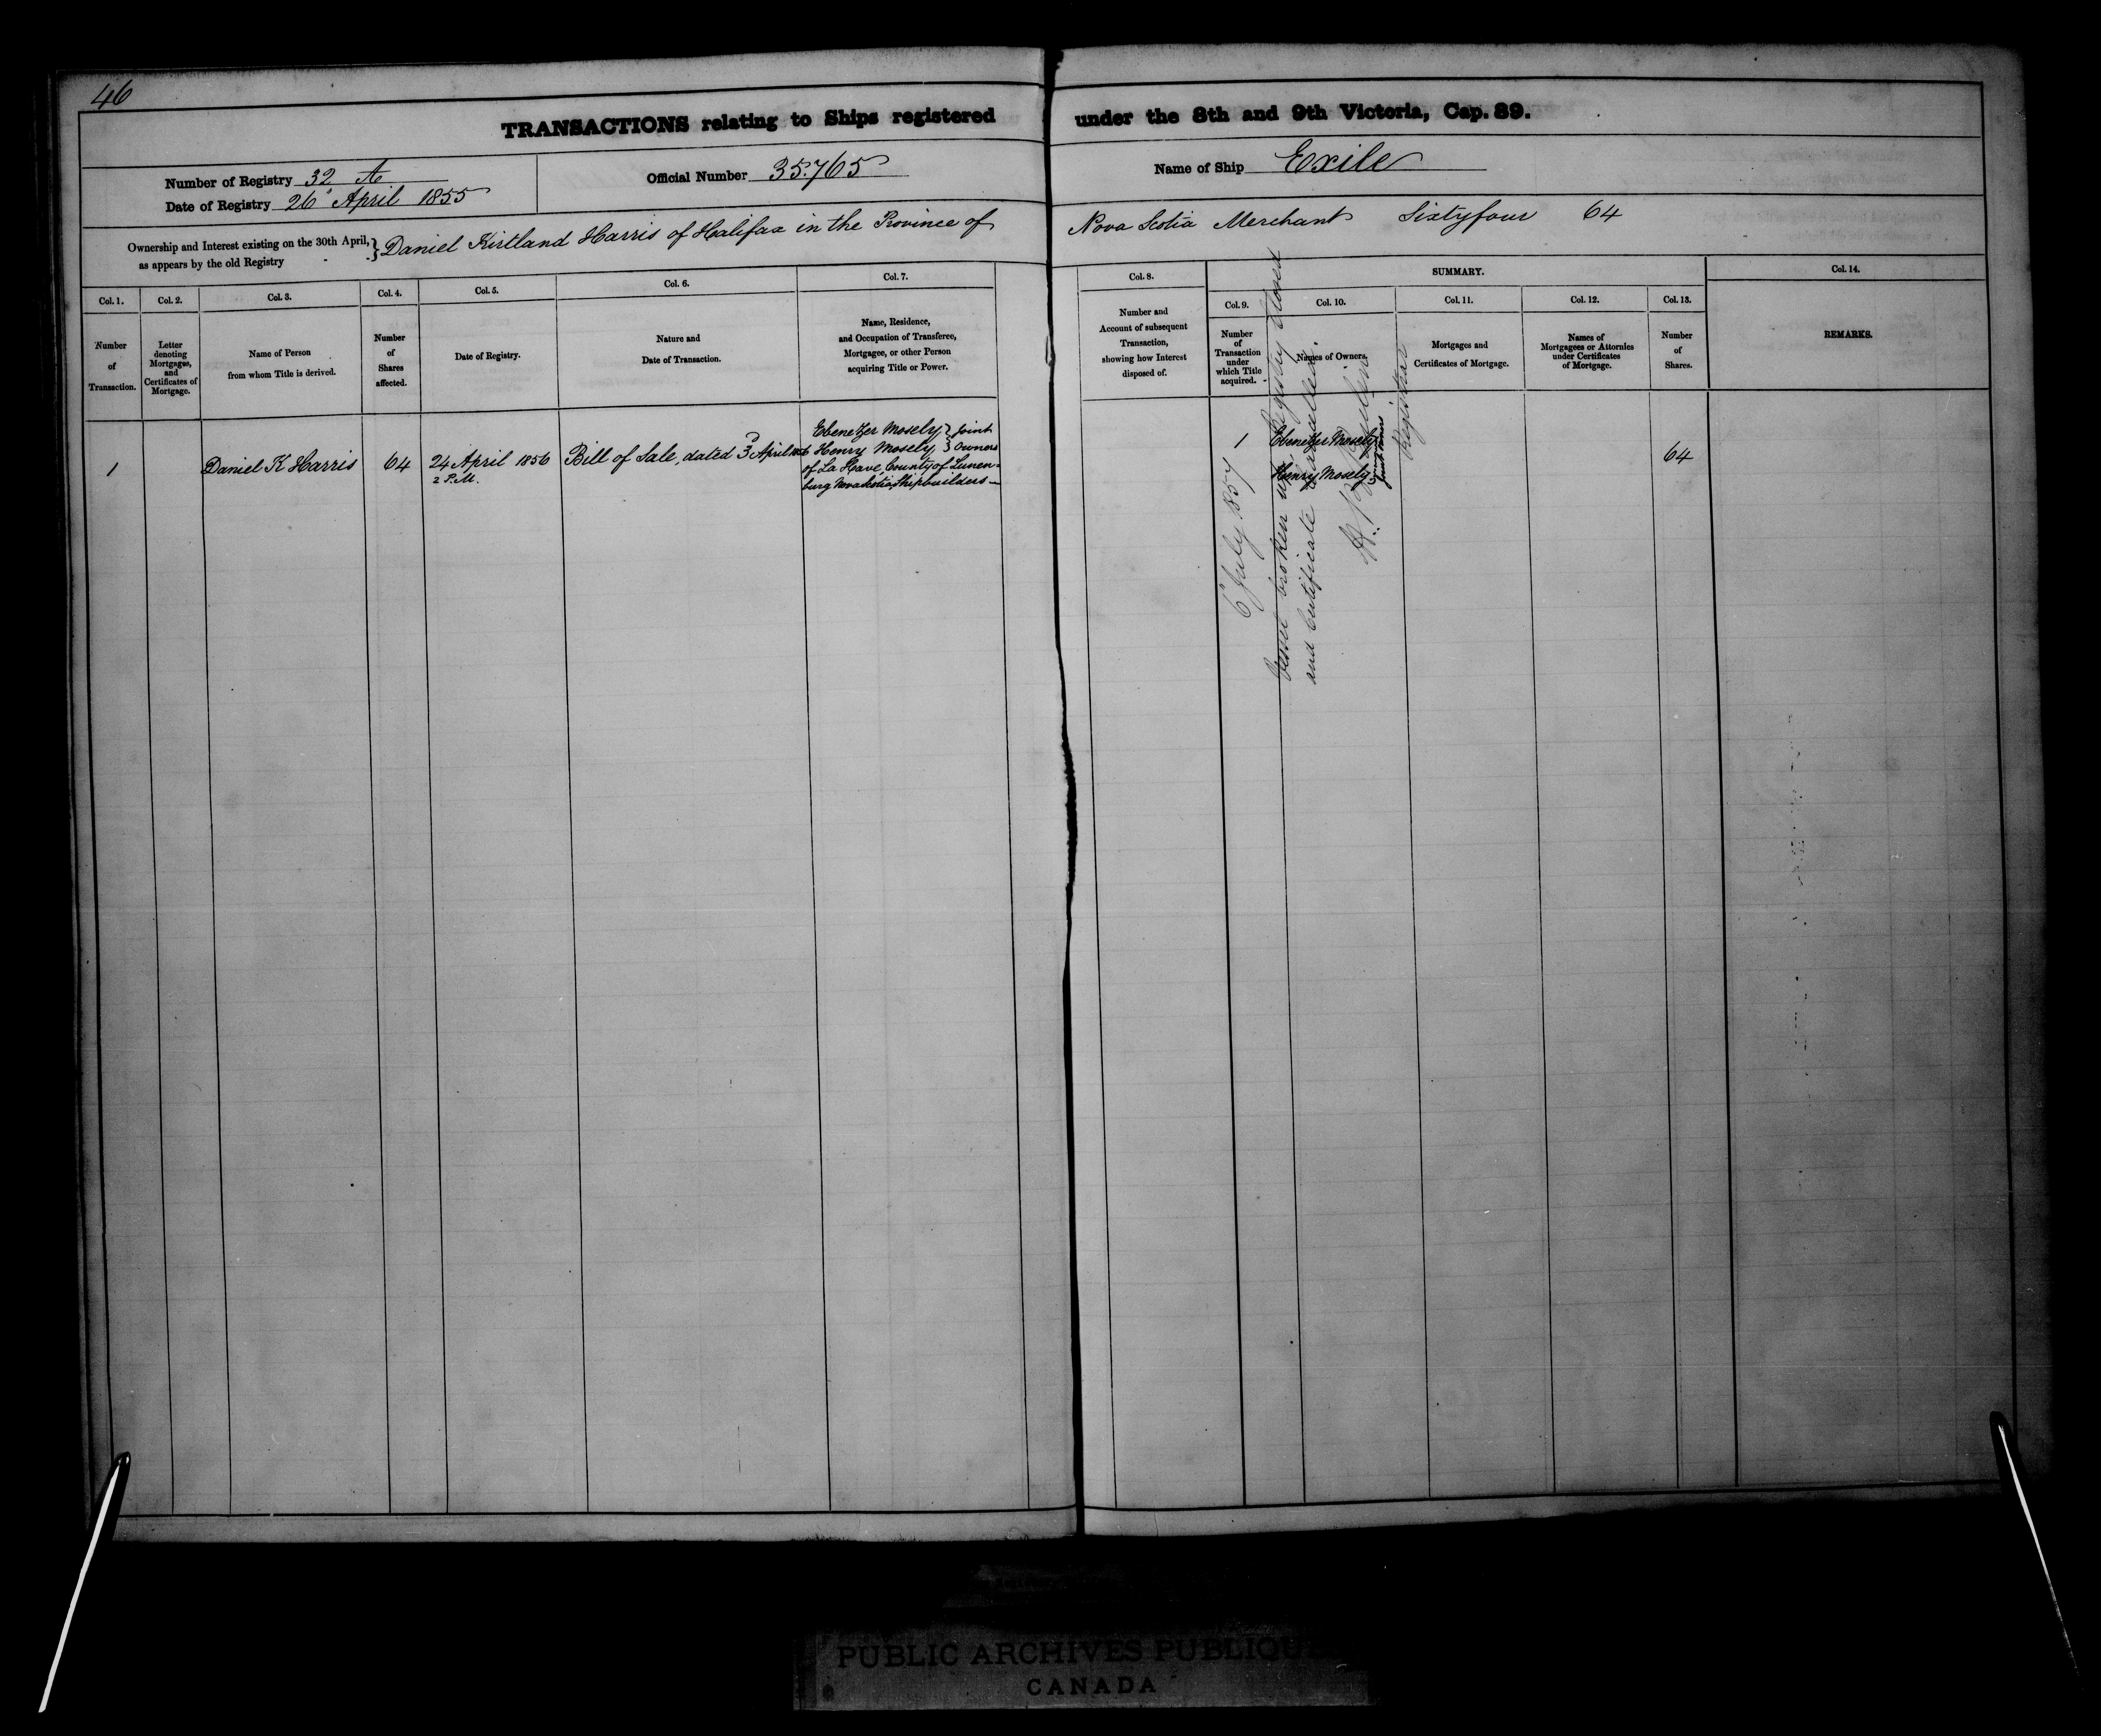 46
TRANSACTIONS relating to Ships registered under the 8th and 9th Victoria, Cap. 89.
Number of Registry 32 A
Date of Registry 26 April 1855
Official Number 35.765
Name of Ship Exile
Ownership and Interest existing on the 30th April, as appears by the old Registry } Daniel Kirtland Harris of Halifax in the Province of Nova Scotia Merchant Sixtyfour 64
Col. 1.
Number
of
Transaction.
Col. 2.
Letter
denoting
Mortgages,
and
Certificates of
Mortgage.
Col. 3.
Name of Person
from whom Title is derived.
Col. 4.
Number
of
Shares
affected.
Col. 5.
Date of Registry.
Col. 6.
Nature and
Date of Transaction.
Col. 7.
Name, Residence,
and Occupation of Transferee,
Mortgagee, or other Person
acquiring Title or Power.
Col. 8.
Number and
Account of subsequent
Transaction,
showing how Interest
disposed of.
SUMMARY.
Col. 9.
Number
of
Transaction
under
which Title
acquired.
Col. 10.
Names of Owners.
Col. 11.
Mortgages and
Certificates of Mortgage.
Col. 12.
Names of
Mortgagees or Attornies
under Certificates
of Mortgage.
Col. 13.
Number
of
Shares.
Col. 14.
REMARKS.
1
Daniel K Harris
64
24 April 1856
2 P.M.
Bill of Sale, dated 3 April 1856
Ebenezer Mosely } Joint
Henry Mosely } Owners
of La Have, County of Lunen-
burg Nova Scotia, Shipbuilders
1
Ebenezer Mosely
Henry Mosely
joint owners
64
6 July 1857
Vessel broken up, Registry closed
and Certificate cancelled.
Registrar
PUBLIC ARCHIVES PUBLIQU
CANADA